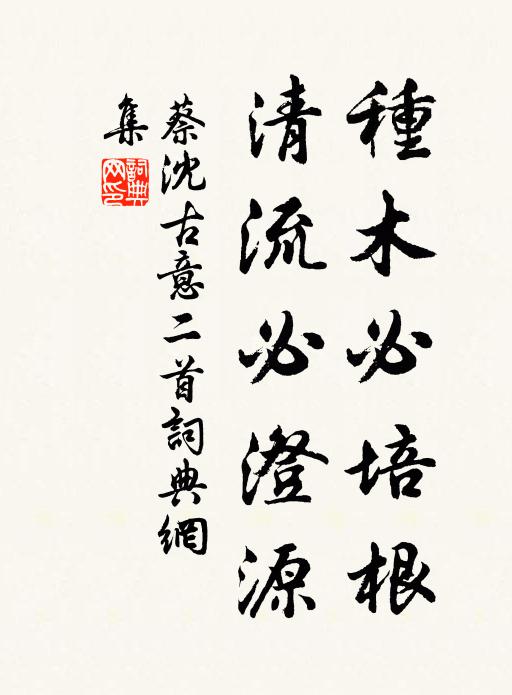 種木必培根
清流必澄源
蔡沈古意二首詞典網
集
詞典
网印